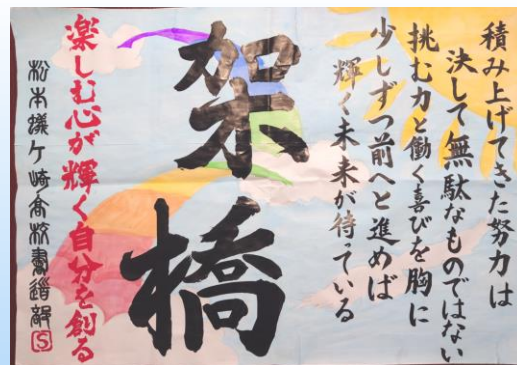 積み上げてきた努力は
決して無駄なものではない
挑む力と働く喜びを胸に
少しずつ前へと進めば
輝く未来が待っている
架橋
楽しむ心が輝く自分を創る
松本蟻ケ崎高校書道部
S